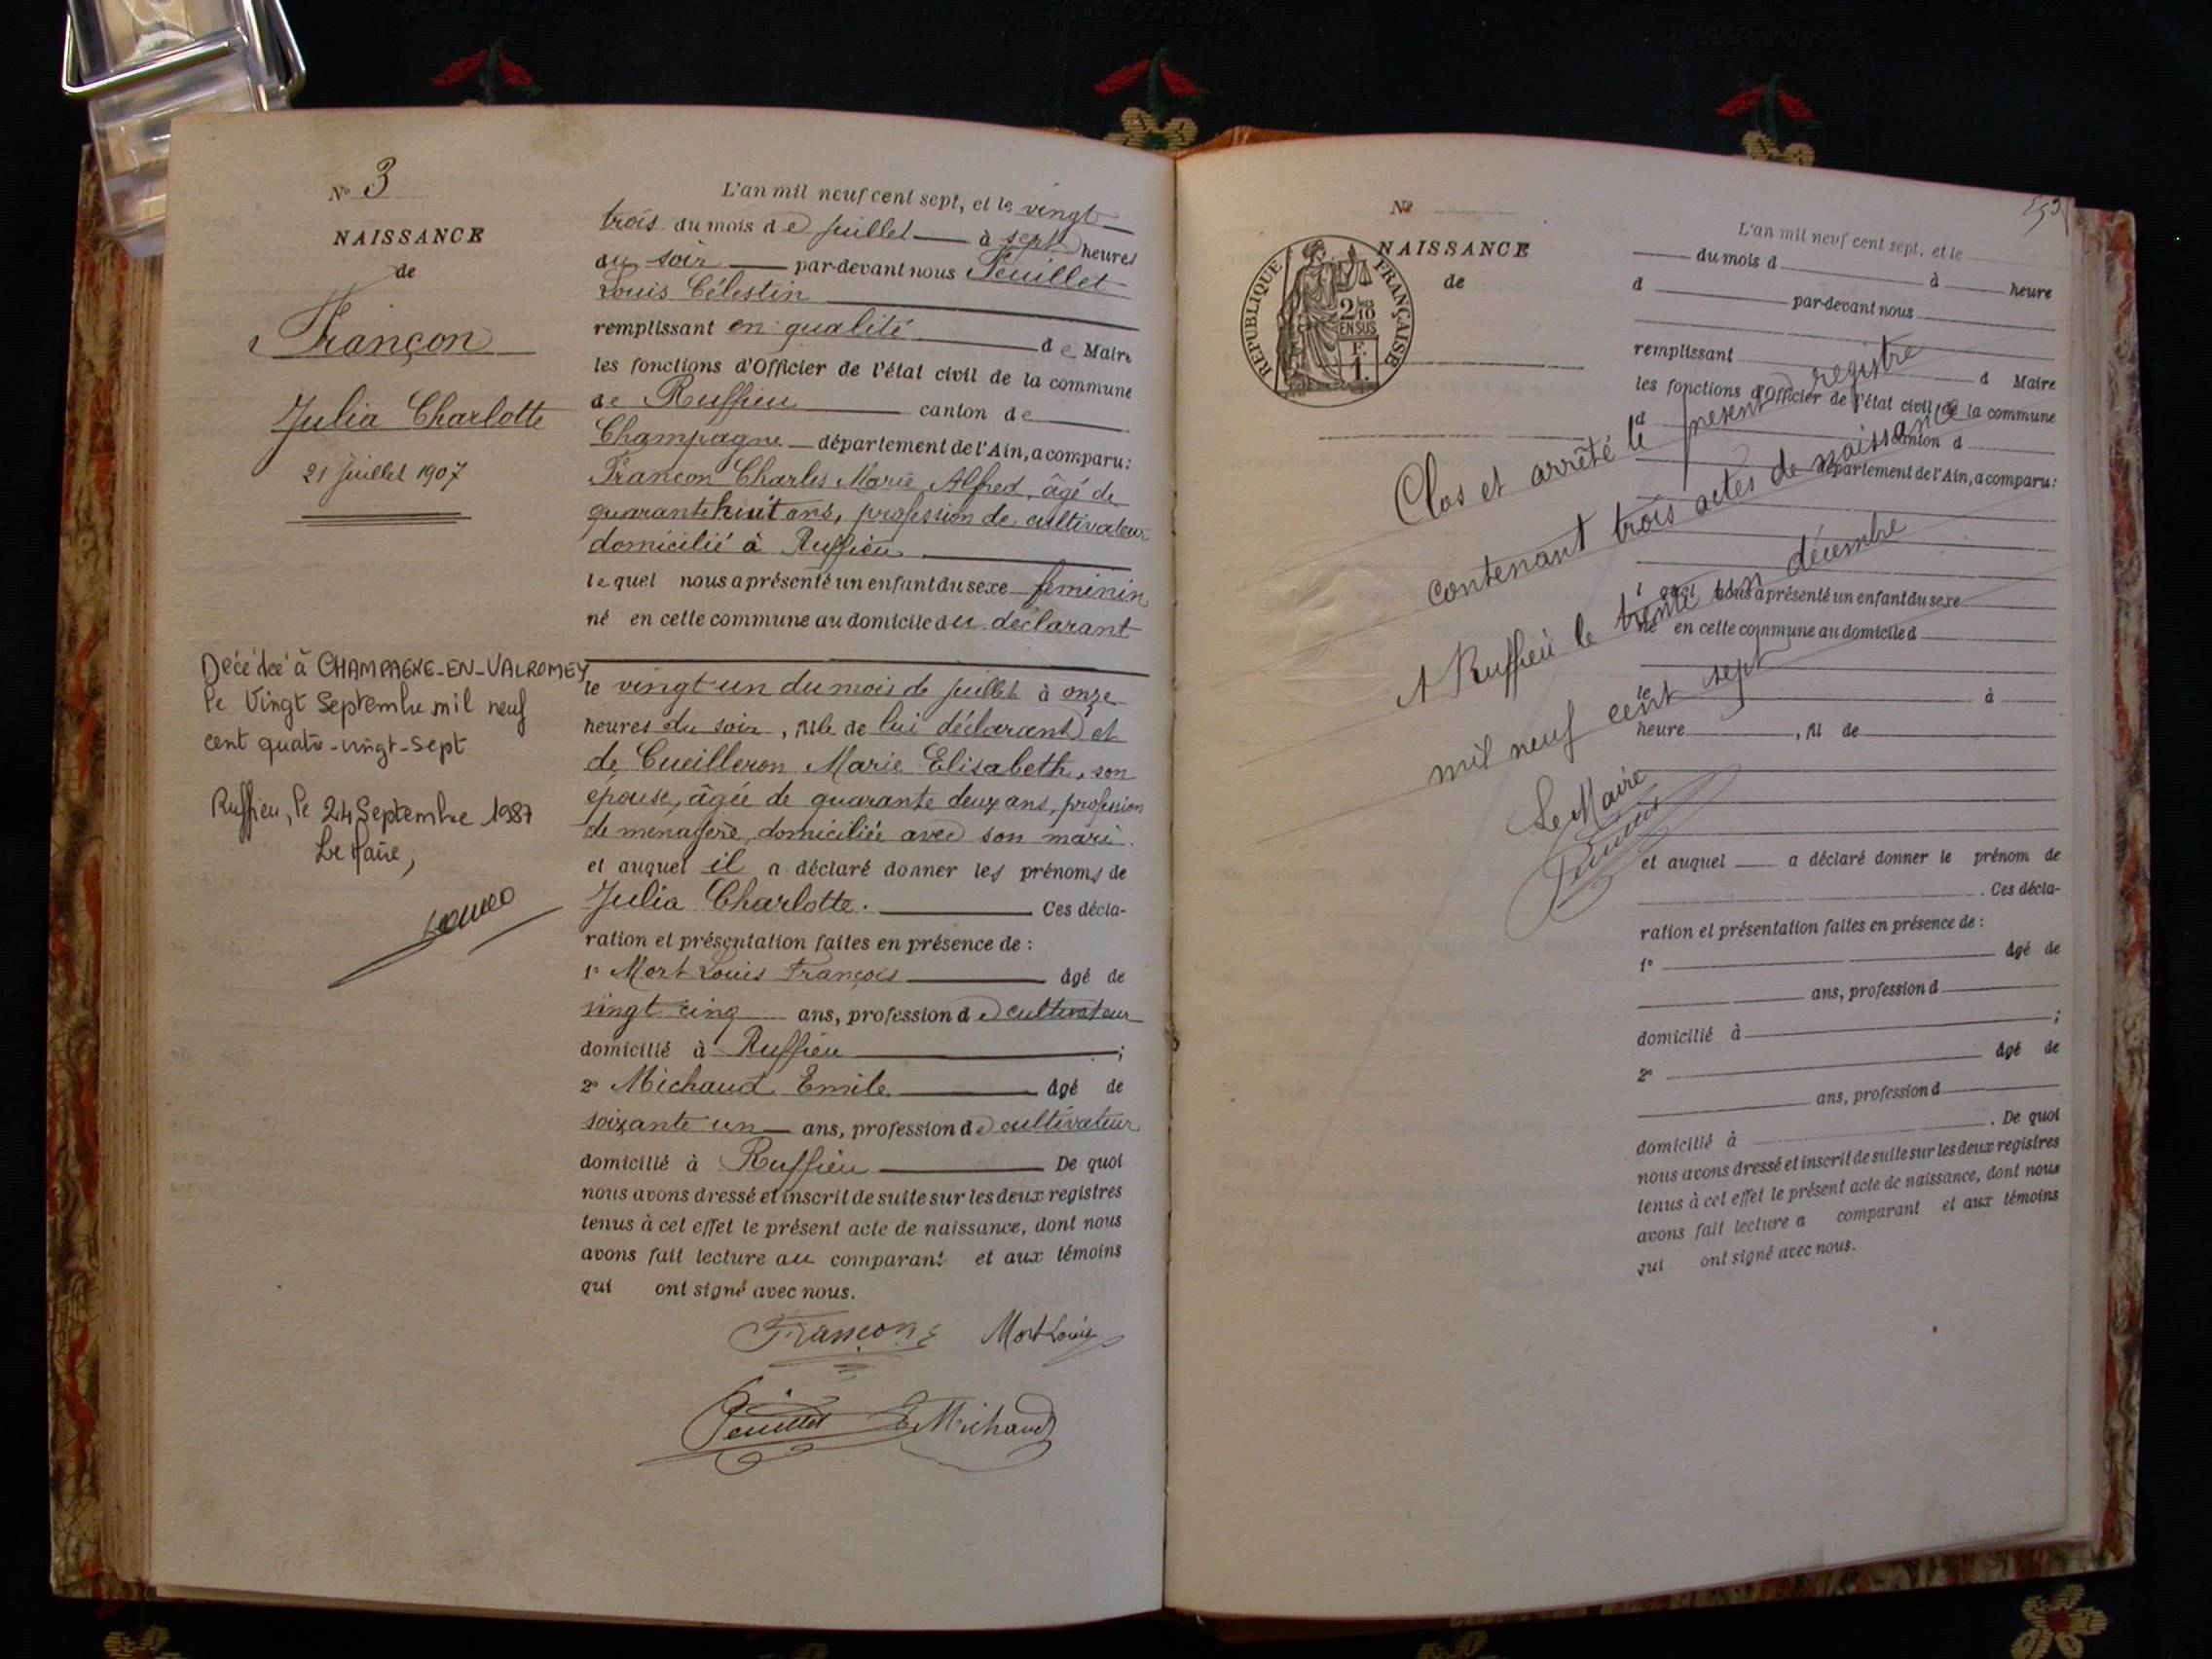 N° 3
NAISSANCE
de
Françon
Julia Charlotte
21 juillet 1907
Décédée à CHAMPAGNE-EN-VALROMEY
le Vingt Septembre mil neuf
cent quatre-vingt-sept
Ruffieu, le 24 Septembre 1987
Le Maire,
L'an mil neuf cent sept, et le vingt
trois du mois de juillet à sept heures
du soir par-devant nous Feuillet
Louis Célestin
remplissant en qualité de Maire
les fonctions d'Officier de l'état civil de la commune
de Ruffieu canton de
Champagne département de l'Ain, a comparu :
Françon Charles Marie Alfred, âgé de
quarante huit ans, profession de cultivateur
domicilié à Ruffieu
lequel nous a présenté un enfant du sexe féminin
né en cette commune au domicile du déclarant
le vingt un du mois de juillet à onze
heures du soir, fille de lui déclarant et
de Cueilleron Marie Elisabeth, son
épouse, âgée de quarante deux ans, profession
de ménagère, domiciliée avec son mari.
et auquel il a déclaré donner les prénoms de
Julia Charlotte. Ces décla-
ration et présentation faites en présence de :
1° Mort Louis François âgé de
vingt cinq ans, profession de cultivateur
domicilié à Ruffieu ;
2° Michaud Emile âgé de
soixante un ans, profession de cultivateur
domicilié à Ruffieu De quoi
nous avons dressé et inscrit de suite sur les deux registres
tenus à cet effet le présent acte de naissance, dont nous
avons fait lecture au comparant et aux témoins
qui ont signé avec nous.
Françon Mort Louis
Feuillet E Michaud
N°
NAISSANCE
de
RÉPUBLIQUE FRANÇAISE
2/10 EN SUS
F.
1.
L'an mil neuf cent sept, et le
du mois d à heure
d par-devant nous
remplissant d Maire
les fonctions d'Officier de l'état civil de la commune
d canton d
département de l'Ain, a comparu :
l quel nous a présenté un enfant du sexe
né en cette commune au domicile d
le à
heure , fil de
et auquel a déclaré donner le prénom de
. Ces décla-
ration et présentation faites en présence de :
1° âgé de
ans, profession d
domicilié à ;
2° âgé de
ans, profession d
domicilié à . De quoi
nous avons dressé et inscrit de suite sur les deux registres
tenus à cet effet le présent acte de naissance, dont nous
avons fait lecture a comparant et aux témoins
qui ont signé avec nous.
Clos et arrêté le présent registre
contenant trois actes de naissance
A Ruffieu le trente un décembre
mil neuf cent sept
Le Maire
Feuillet